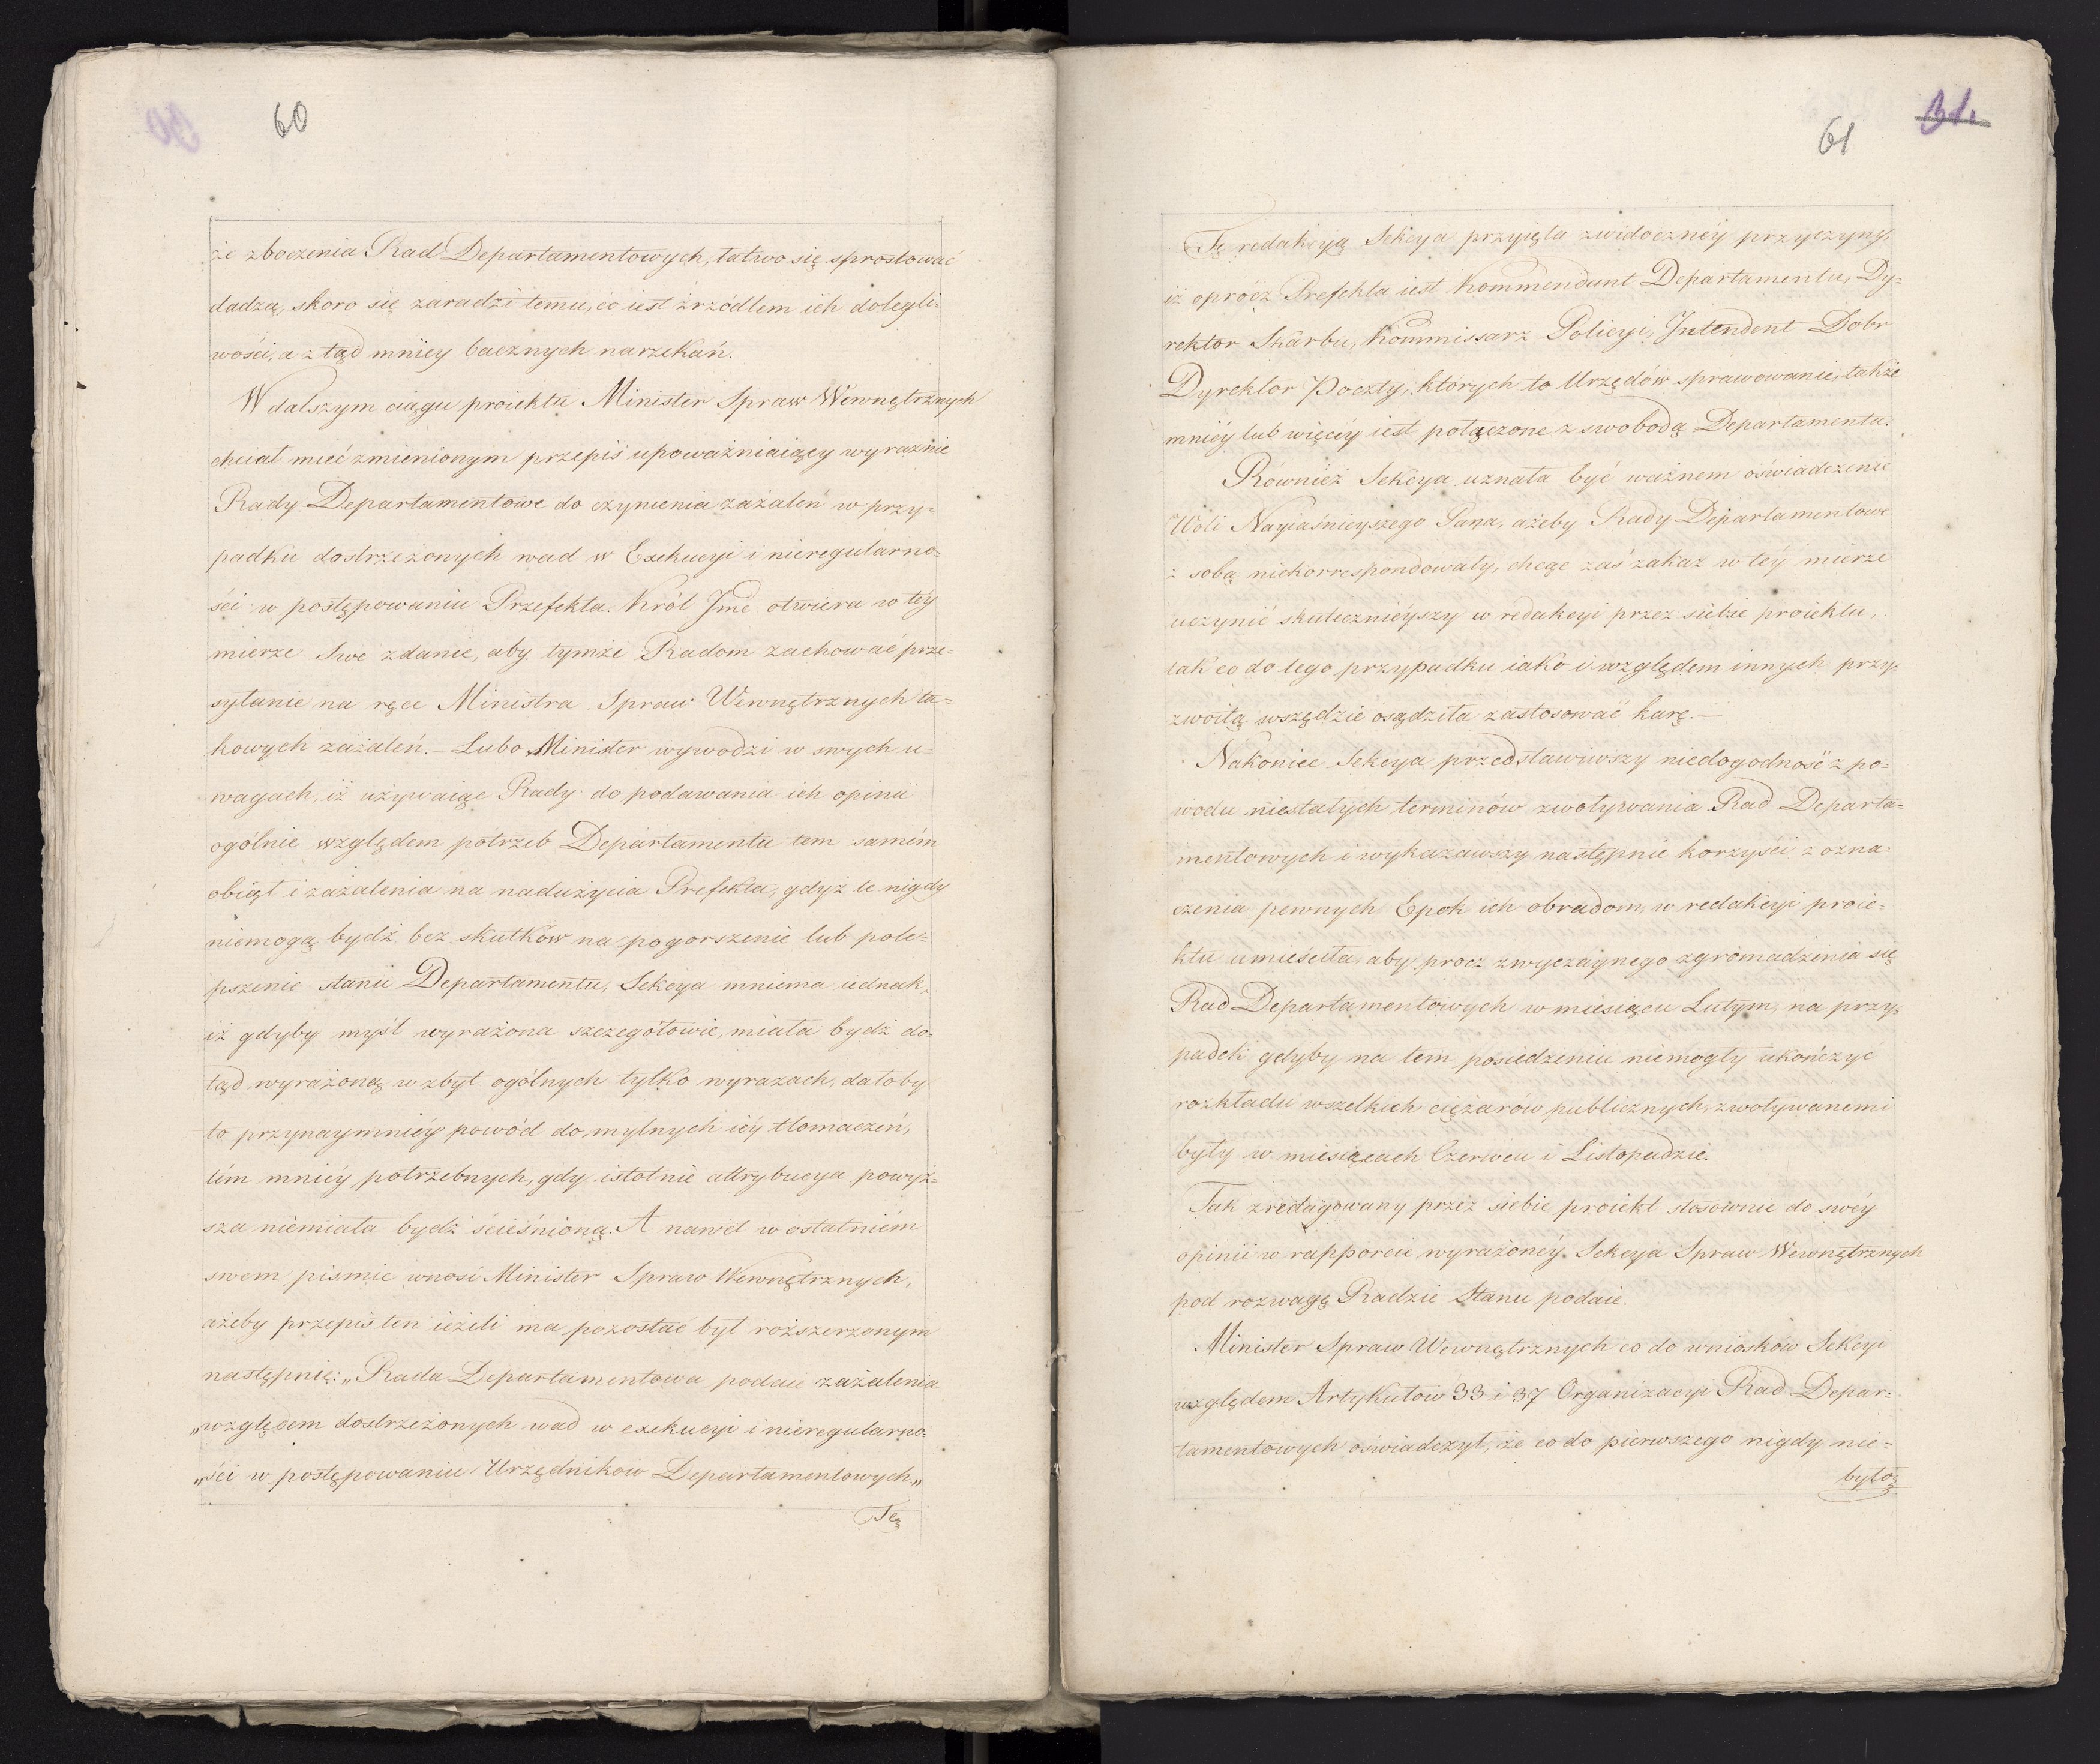 60
że zboczenia Rad Departamentowych, łatwo się sprostować
dadzą, skoro się zaradzi temu, co iest źrzódłem ich dolegli=
wości, a z tąd mniey bacznych narzekań.
W dalszym ciągu proiektu Minister Spraw Wewnętrznych
chciał mieć zmienionym przepis upoważniaiący wyraźnie
Rady Departamentowe do czynienia zażaleń w przy=
padku dostrzeżonych wad w Exekucyi i nieregularno=
ści w postępowaniu Przefekta. Król Jmć otwiera w téy
mierze Swe zdanie, aby tymże Radom zachować prze=
syłanie na ręce Ministra Spraw Wewnętrznych ta=
kowych zażaleń. – Lubo Minister wywodzi w swych u=
wagach, iż używaiąc Rady do podawania ich opinii
ogólnie względem potrzeb Departamentu tem samém
obiął i zażalenia na nadużycia Prefekta, gdyż te nigdy
niemogą bydź bez skutków na pogorszenie lub pole=
pszenie stanu Departamentu, Sekcya mniema iednak,
iż gdyby myśl wyrażona szczegółowie, miała bydź do=
tąd wyrażoną w zbyt ogólnych tylko wyrazach, dałoby
to przynaymniéy powód do mylnych iéy tłomaczeń,
tém mniéy potrzebnych, gdy istotnie attrybucya powyż=
sza niemiała bydź ścieśnioną. A nawet w ostatniém
swem pismie wnosi Minister Spraw Wewnętrznych,
ażeby przepis ten ieżeli ma pozostać był rozszerzonym
następnie: „Rada Departamentowa podaie zażalenia
„względem dostrzeżonych wad w exekucyi i nieregularno=
„ści w postępowaniu Urzędników Departamentowych„
Tę
31.
61
Tę redakcyą Sekcya przyięła z widoczney przyczyny,
iż oprócz Prefekta iest Kommendant Departamentu, Dy=
rektor Skarbu, Kommissarz Policyi, Intendent Dobr
Dyrektor Poczty, których to Urzędów sprawowanie, także
mniéy lub więcéy iest połączone z swobodą Departamentu.
Również Sekcya uznała być ważnem oświadczenie
Woli Nayiaśnieyszego Pana, ażeby Rady Departamentowe
z sobą niekorrespondowały, chcąc zaś zakaz w téy mierze
uczynić skutecznieyszy w redakcyi przez siebie proiektu,
tak co do tego przypadku iako i względem innych przy=
zwoitą wszędzie osądziła zastosować karę. –
Nakoniec Sekcya przedstawiwszy niedogodność z po=
wodu niestałych terminów zwoływania Rad Departa=
mentowych i wykazawszy następnie korzyści z ozna=
czenia pewnych Epok ich obradom, w redakcyi proie=
ktu umieściła, aby procz zwyczaynego zgromadzenia się
Rad Departamentowych w miesiącu Lutym, na przy=
padek gdyby na tem posiedzeniu niemogły ukończyć
rozkładu wszelkich ciężarów publicznych, zwoływanemi
były w miesiącach Czerwcu i Listopadzie.
Tak zredagowany przez siebie proiekt stosownie do swéy
opinii w rapporcie wyrażonéy Sekcya Spraw Wewnętrznych
pod rozwagę Radzie Stanu podaie.
Minister Spraw Wewnętrznych co do wniosków Sekcyi
względem Artykułów 33 i 37 Organizacyi Rad Depar=
tamentowych oświadczył, że co do pierwszego nigdy nie=
było